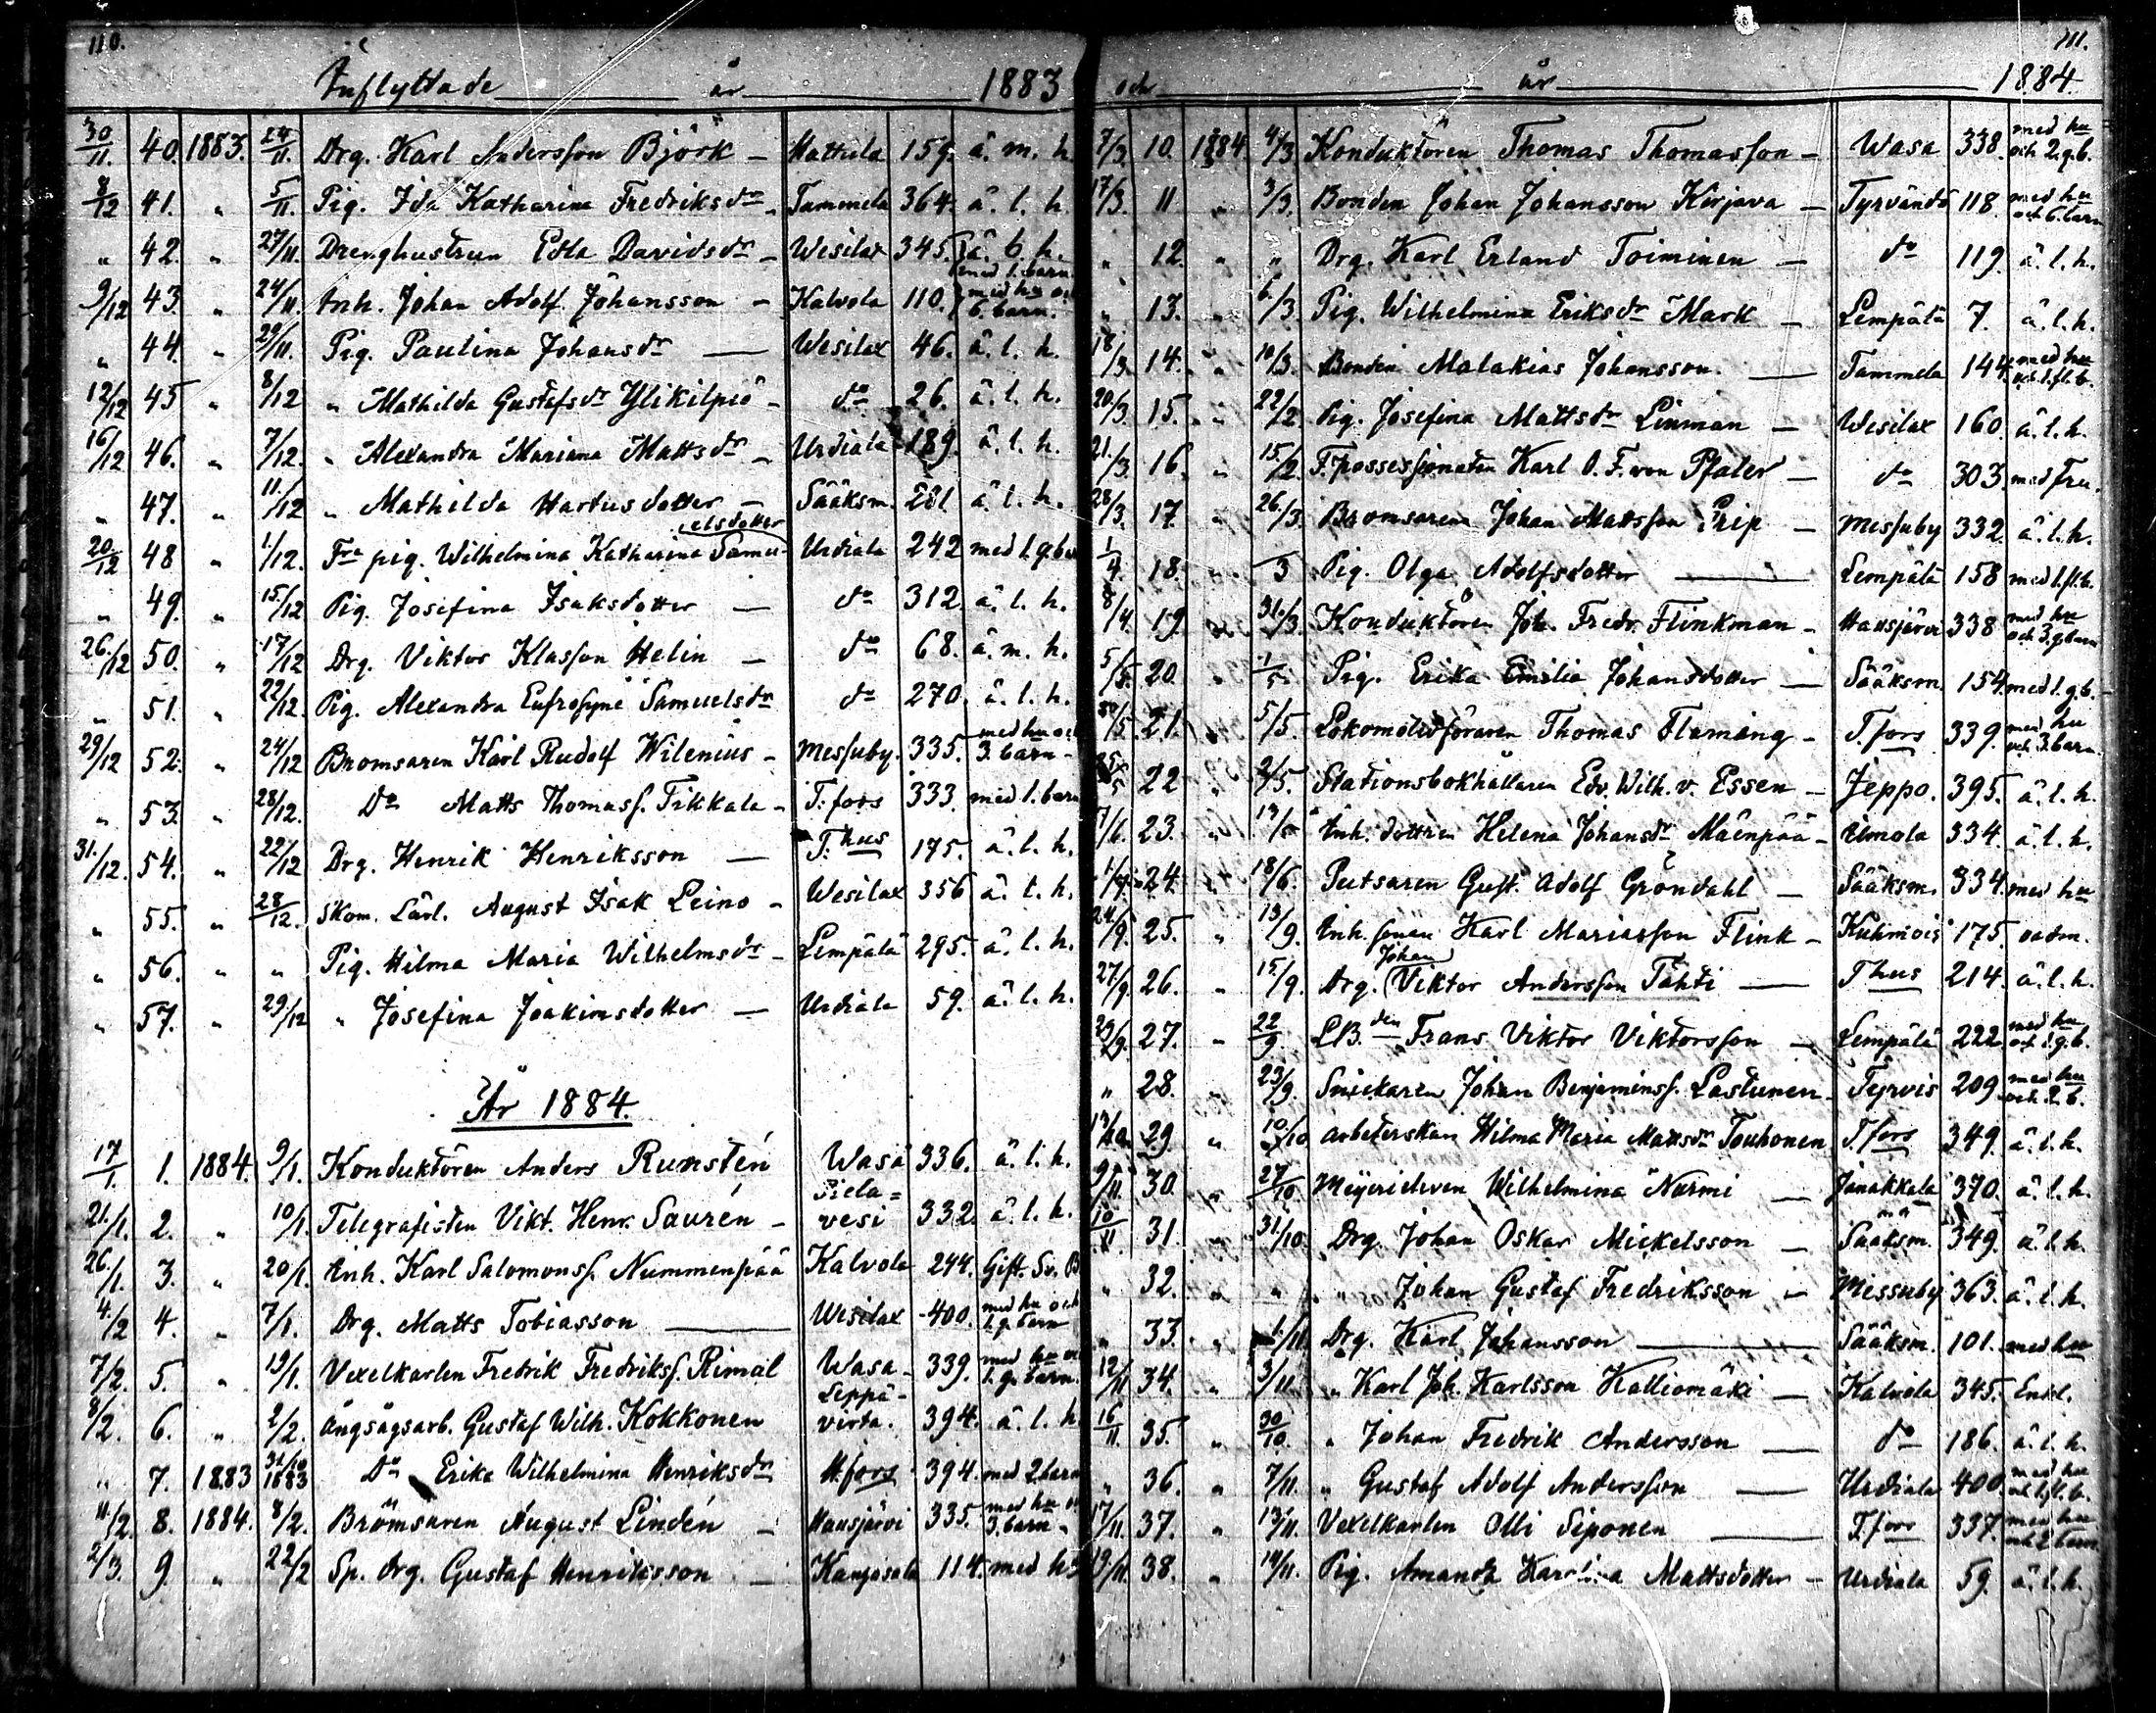 110.
Inflyttade år 1883
30/11. 40. 1883. 24/11. Drg. Karl Andersson Björk – Hattula 159. ä. m. h.
8/12 41. " 5/11. Pig. Ida Katharina Fredriksdr – Tammela 364. ä. l. h.
" 42. " 27/11. Drenghustrun Edla Davidsdr – Wesilax 345. ä. b. h. med 1. barn
9/12 43. " 24/11. Inh. Johan Adolf Johansson – Kalvola 110. med hu o. 6. barn.
" 44. " 29/11. Pig. Paulina Johansdr — Wesilax 46. ä. l. h.
12/12 45 " 8/12 " Mathilda Gustafsdr Ylikilpiö – do 26. ä. l. h.
16/12 46. " 7/12. " Alexandra Mariana Mattsdr – Urdiala 189. ä. l. h.
" 47. " 11./12 " Mathilda Hartusdotter – Sääksm. 281 ä. l. h.
20/12 48 " 1/12. Fra pig. Wilhelmina Katharina Samu-elsdotter Urdiala 242 med 1. g. ba
" 49. " 15/12 Pig. Josefina Isaksdotter — do 312. ä. l. h.
26./12 50. " 17/12 Drg. Viktor Klasson Helin — do 68. ä. m. h.
" 51. " 22/12. Pig. Alexandra Eufrosyne Samuelsdr do 270. ä. l. h.
29/12 52. " 24/12 Bromsaren Karl Rudolf Wilenius – Messuby. 335. med hu och 3. barn –
" 53. " 28/12. Do Matts Thomass. Tikkala – T:fors 333. med 1. barn
31./12. 54. " 22/12 Drg. Henrik Henriksson — T:hus 175. ä. l. h.
" 55. " 28/12. Skom. Lärl. August Isak Leino – Wesilax 356 ä. l. h.
" 56. " " Pig. Hilma Maria Wilhelmsdr – Lempälä 295. ä. l. h.
" 57. " 29/12 " Josefina Joakimsdotter — Urdiala 59. ä. l. h.
År 1884.
17/1. 1. 1884. 9/1. Konduktören Anders Runstén Wasa 336. ä. l. h.
21./1. 2. " 10/1. Telegrafisten Vikt. Henr. Saurén – Pielavesi 332. ä. l. h.
26./1. 3. " 20/1. Inh. Karl Salomonss. Nummenpää Kalvola 244. Gift. Sv. B
4./2 4. " 7/1. Drg. Matts Tobiasson — Wesilax 400. med hu och 1. g. barn
7/2. 5. " 19/1. Vexelkarlen Fredrik Fredrikss. Rimal Wasa – 339. med hu o 1. g. barn.
8/2. 6. " 2/2. Ångsågsarb. Gustaf Wilh. Kokkonen Leppä-virta. 394. ä. l. h
" 7. 1883 31/10 1883 Do Erika Wilhelmina Henriksdr H:fors 394. med 2 barn
11./2. 8. 1884. 8/2. Brömsaren August Lindén – Hausjärvi 335. med hu o 3. barn –
2/3. 9. " 22/2 Sp. drg. Gustaf Henriksson — Kangasala 114. med hu
111.
och år 1884.
7/3. 10. 1884 4/3 Konduktören Thomas Thomasson – Wasa 338. med hu och 2. g. b.
17/3. 11 " 3/3. Bonden Johan Johansson Kirjava – Tyrväntö 118. med hu och 6. barn
" 12. " " Drg. Karl Erland Toiminen — do 119. ä. l. h.
" 13. " 6./3 Pig. Wilhelmina Eriksdr Mark – Lempälä 7. ä. l. h.
18/3 14. " 10/3. Bonden Malakias Johansson. — Tammela 144. med hu och 1. fl. b.
20/3 15. " 22/2 Pig. Josefina Mattsdr Linman – Wesilax 160. ä. l. h.
21./3. 16. " 15/2 F. possessionaten Karl O. F. von Pfaler – do 303. med Fru.
28/3. 17. " 26./3 Bromsaren Johan Mattsson Grip – Messuby 332. ä. l. h.
1/4. 18. " 3 Pig. Olga Adolfsdotter — Lempälä 158 med 1. fl. b.
8/4. 19. 31./3 Konduktören Joh. Fredr. Flinkman – Hausjärvi 338 med hu och 3. g barn
5/5. 20. 1/5 Pig. Erika Emilia Johansdotter — Sääksm. 154. med 1. g. b.
21. 5/5. Lokomotivföraren Thomas Flaming – T.fors 339. med hu och 3. barn.
22 2/5. Stationsbokhållaren Edv. Wilh. v. Essen – Jeppo. 395. ä. l. h.
7/6. 23. " Inh. dottren Helena Johansdr Mäenpää – Ulmola 334. ä. l. h.
24. 18/6. Putsaren Gust. Adolf Gröndahl – Sääksm. 334. med hu
24/9. 25. " 13/9. Inh. sonen Karl Mariasson Flink – Kuhmois 175. oadm.
27/9. 26. " 15/9. Drg. Johan Viktor Andersson Tähti — T hus 214. ä. l. h.
29/9. 27. " 22/9. LB.den Frans Viktor Viktorsson – Lempälä 222. med hu och 1. g. b.
" 28. " 23/9. Snickaren Johan Benjaminss. Lastunen – Tyrvis 209. med hu och 2. b.
29 " 10/10 Arbeterskan Hilma Maria Mattsdr Touhonen T.fors 349. ä. l. h.
9/11. 30. " 27/10 Mejerieleven Wilhelmina Nurmi — Janakkala 370. ä. l. h.
10/11. 31. " 31/10. Drg. Johan Oskar Mickelsson – Sääksm. 349. ä. l. h.
" 32. " " " Johan Gustaf Fredriksson – Messuby 363. ä. l. h.
" 33. " 1./11. Drg. Karl Johansson — Sääksm. 101. med hu
12/11 34. " 3/11. " Karl Joh. Karlsson Kalliomäki — Kalvola 345. Enkl.
16/11. 35. " 30/10. " Johan Fredrik Andersson — do 186. ä. l. h.
" 36. " 7/11. " Gustaf Adolf Andersson — Urdiala 400. med hu och 1. fl. b.
17/11. 37. " 13/11. Vexelkarlen Olli Siponen — T.fors 337. med hu och 2 barn
19/11. 38. " 14/11. Pig. Amanda Karolina Mattsdotter – Urdiala 59. ä. l. h.